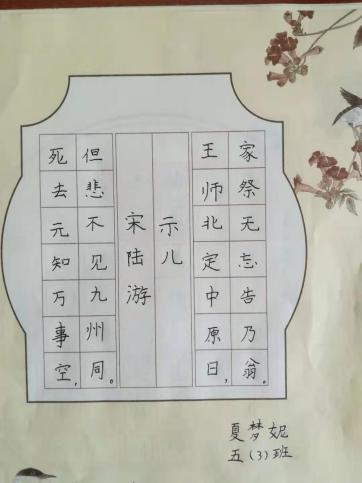 死去元知万事空,
但悲不见九州同。
宋陆游
示儿
王师北定中原日,
家祭无忘告乃翁。
夏梦妮
五(3)班